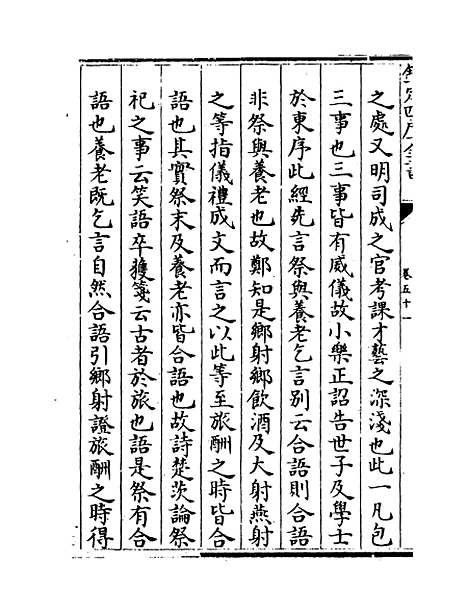 欽定四庫全書
卷五十一
之處又明司成之官考課才藝之深淺也此一凡包
三事也三事皆有威儀故小樂正詔告世子及學士
於東序此經先言祭與養老乞言別云合語則合語
非祭與養老也故鄭知是鄉射鄉飲酒及大射燕射
之等指儀禮成文而言之以此等至旅酬之時皆合
語也其實祭末及養老亦皆合語也故詩楚茨論祭
祀之事云笑語卒獲箋云古者於旅也語是祭有合
語也養老既乞言自然合語引鄉射證旅酬之時得